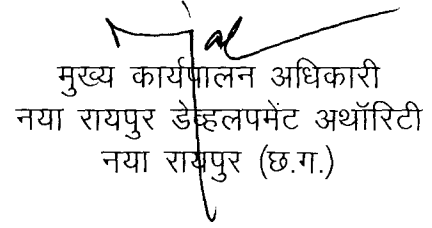 मुख्य कार्यपालन अधिकारी
नया रायपुर डेव्हलपमेंट अथॉरिटी
नया रायपुर (छ.ग.)